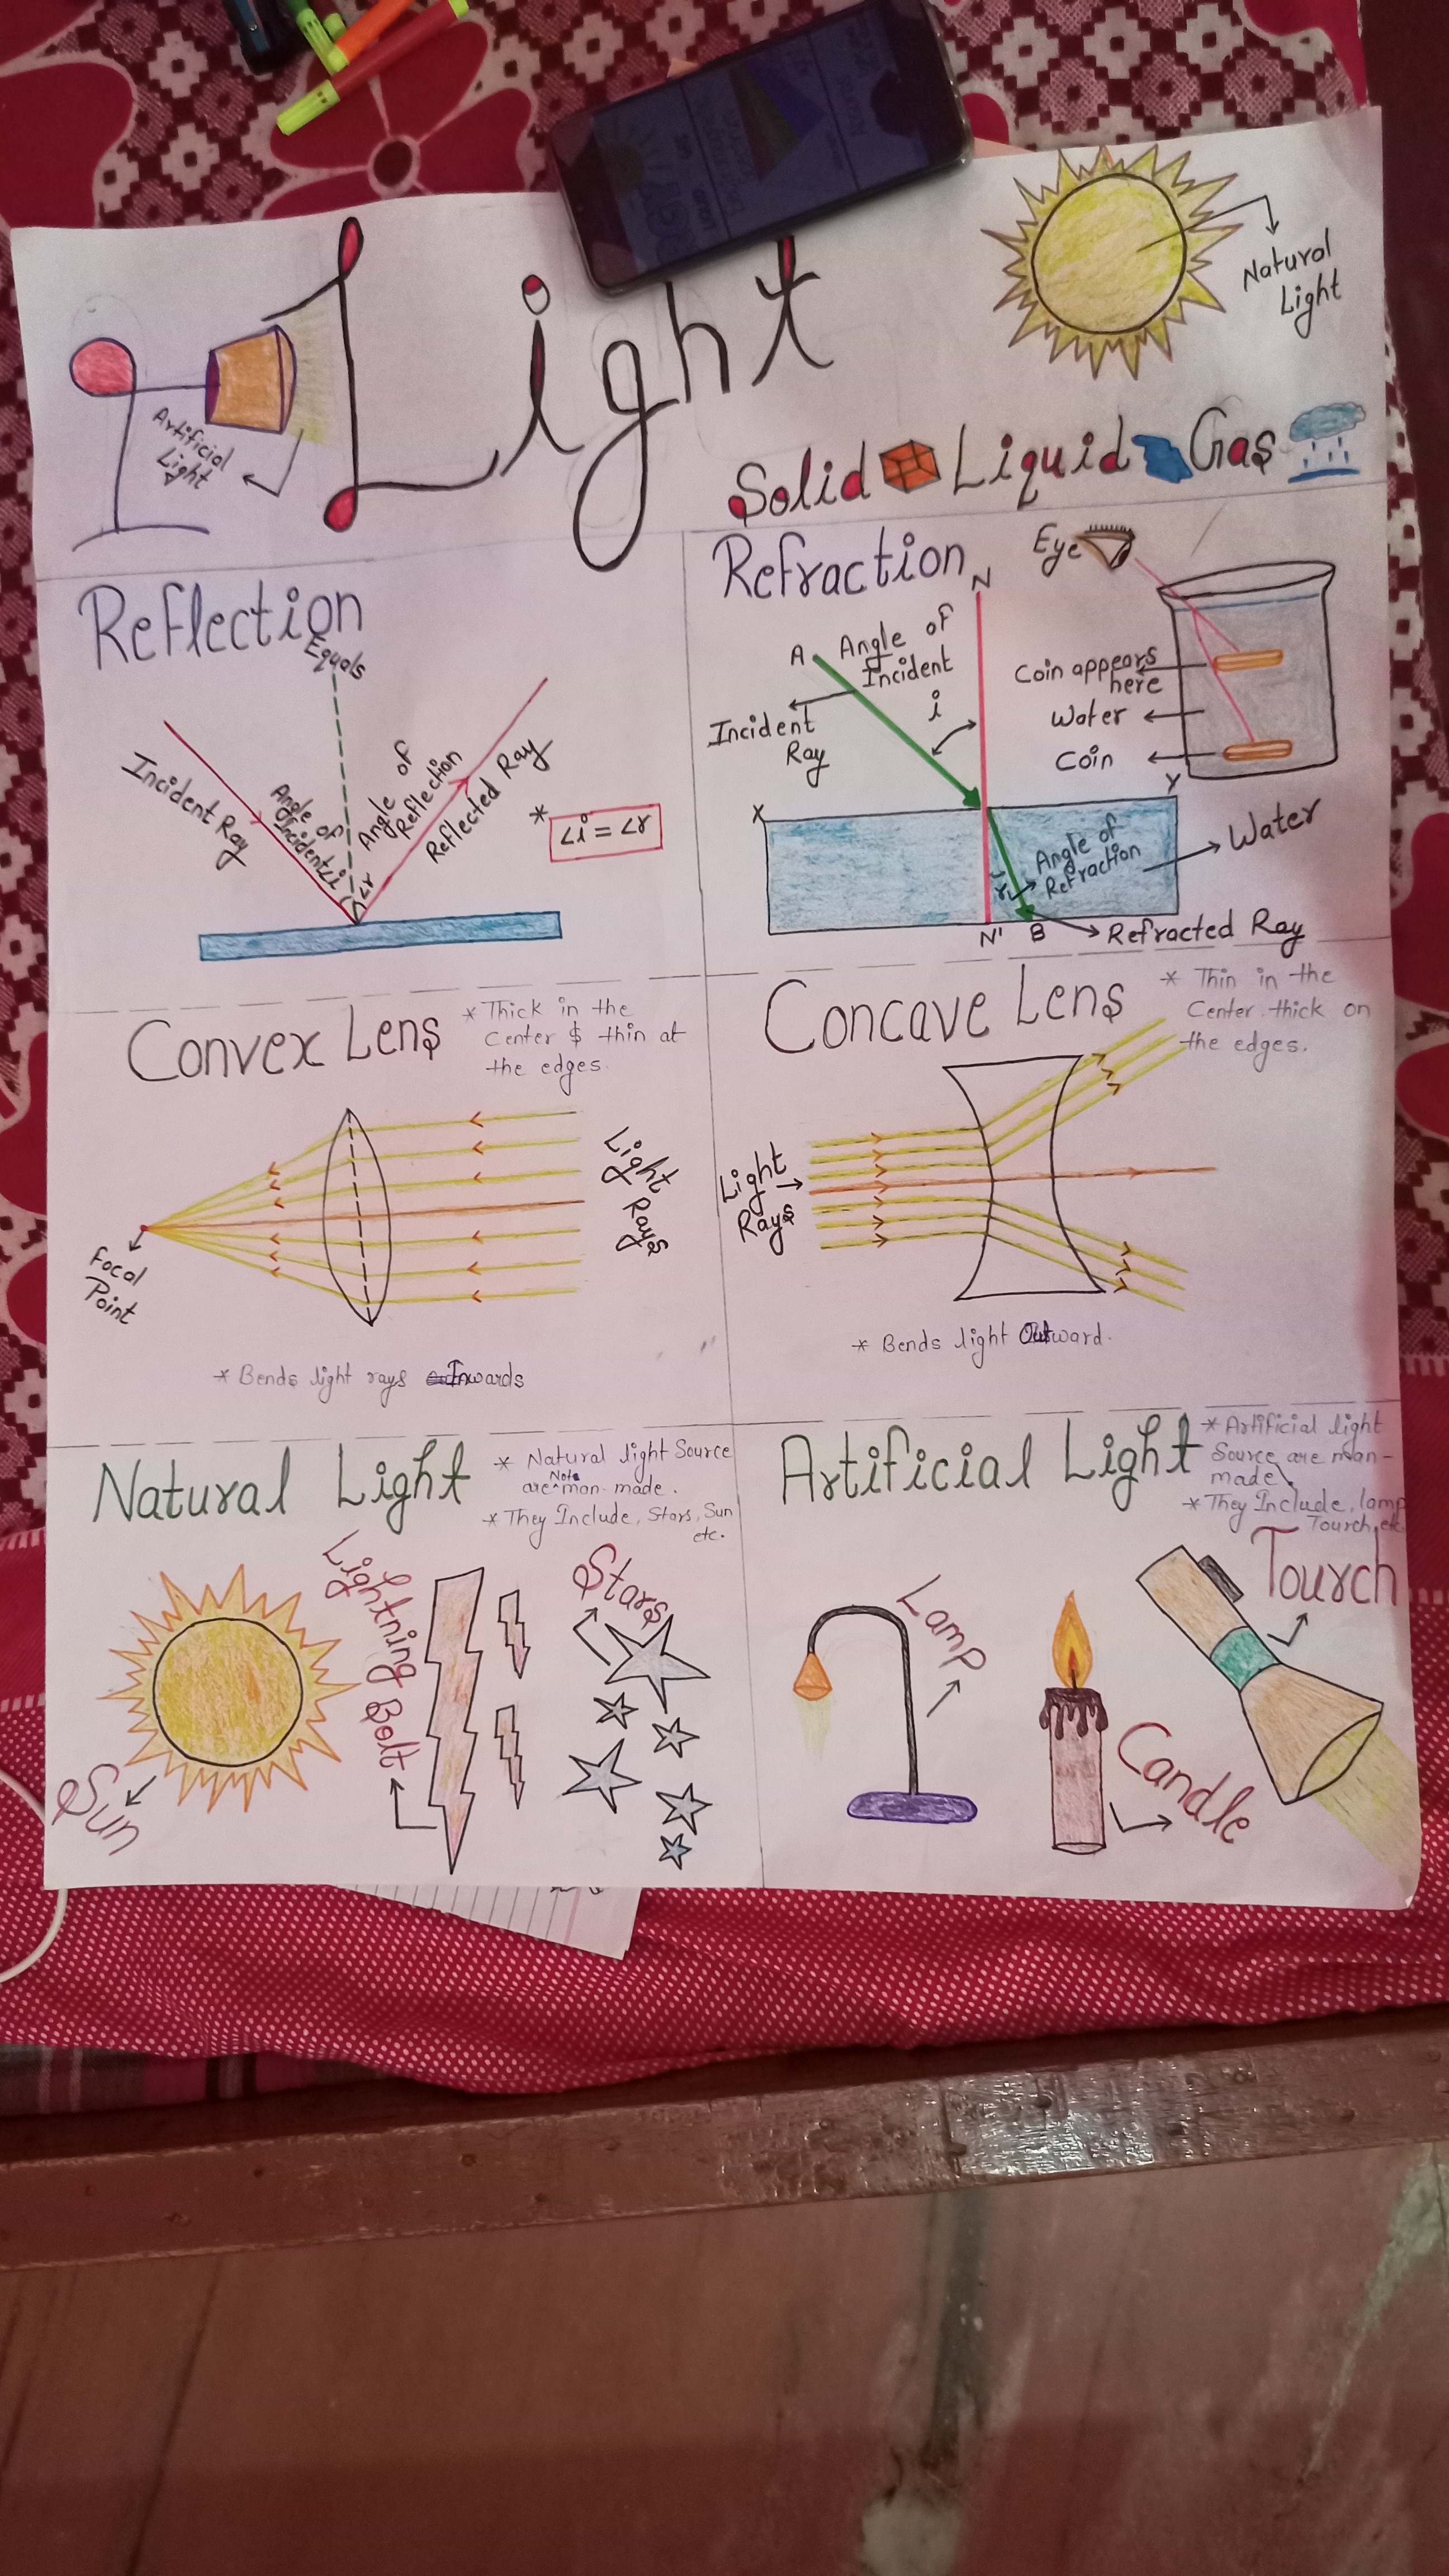 Light
Artificial
Light
Natural
Light
Solid Liquid Gas
Reflection
Equals
Incident Ray
Angle of
Incident
∠i
∠r
Angle
of
Reflection
Reflected Ray
* ∠i = ∠r
Refraction
N
Eye
A
Angle of
Incident
i
Incident
Ray
Coin appears
here
Water
Coin
X
Y
Angle of
Refraction
r
Water
N' B
Refracted Ray
Convex Lens
* Thick in the
Center & thin at
the edges.
Light
Rays
Focal
Point
* Bends light rays Inwards
Concave Lens
* Thin in the
Center thick on
the edges.
Light
Rays
* Bends light Outward.
Natural Light
* Natural light Source
are Note man-made.
* They Include, Stars, Sun
etc.
Sun
Lightning Bolt
Stars
Artificial Light
* Artificial light
Source are man-
made
* They Include, lamp
Tourch, etc
Lamp
Candle
Tourch